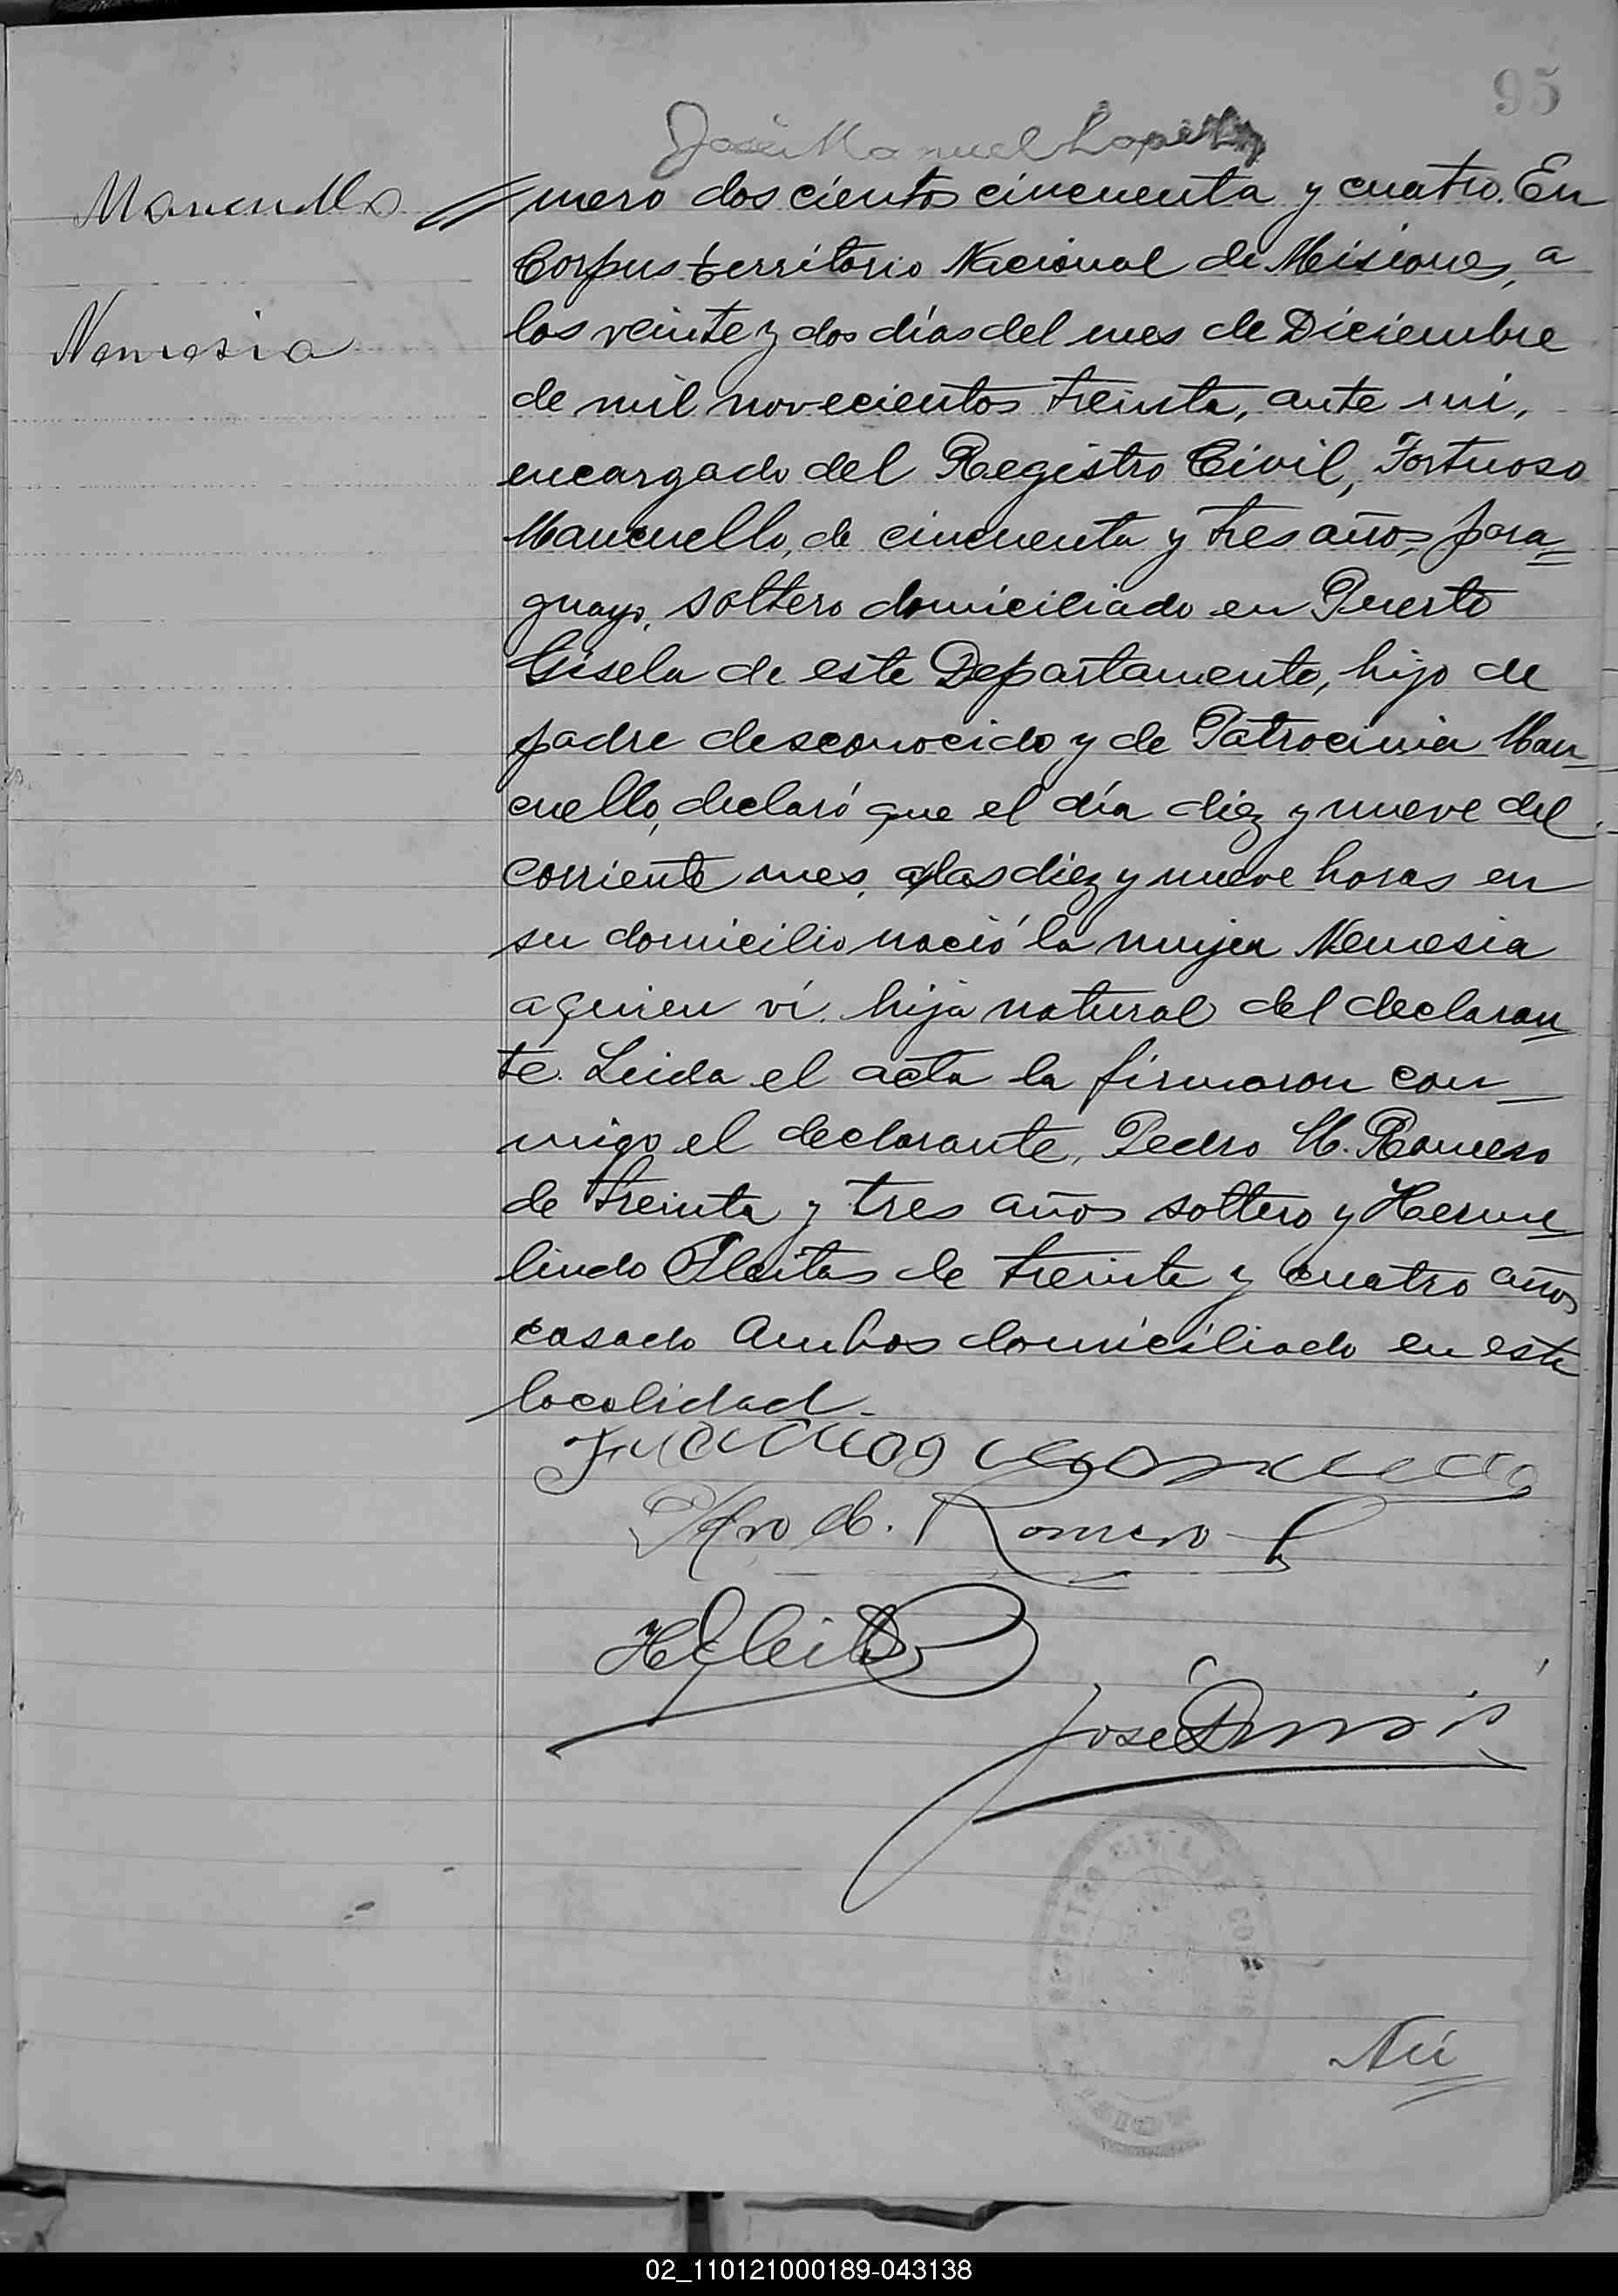 95
José Manuel Lopez
Mancuello
mero dos cientos cincuenta y cuatro. En
Corpus territorio Nacional de Misiones, a
Nemesia
los veinte y dos días del mes de Diciembre
de mil novecientos treinta, ante mí,
encargado del Registro Civil, Fortuoso
Mancuello, de cincuenta y tres años, para=
guayo, soltero domiciliado en Puerto
Gisela de este Departamento, hijo de
padre desconocido y de Patrocinia Man_
cuello, declaró que el día diez y nueve del
corriente mes, a las diez y nueve horas en
su domicilio nació la mujer Nemesia
a quien ví, hija natural del declaran_
te. Leida el acta la firmaron con_
migo el declarante, Pedro M. Romero
de treinta y tres años soltero y Herme_
lindo Fleitas de treinta y cuatro años
casado ambos domiciliado en esta
localidad.
Pedro M. Romero
H Fleitas
José
REGISTRO CIVIL
Nú
02_110121000189-043138